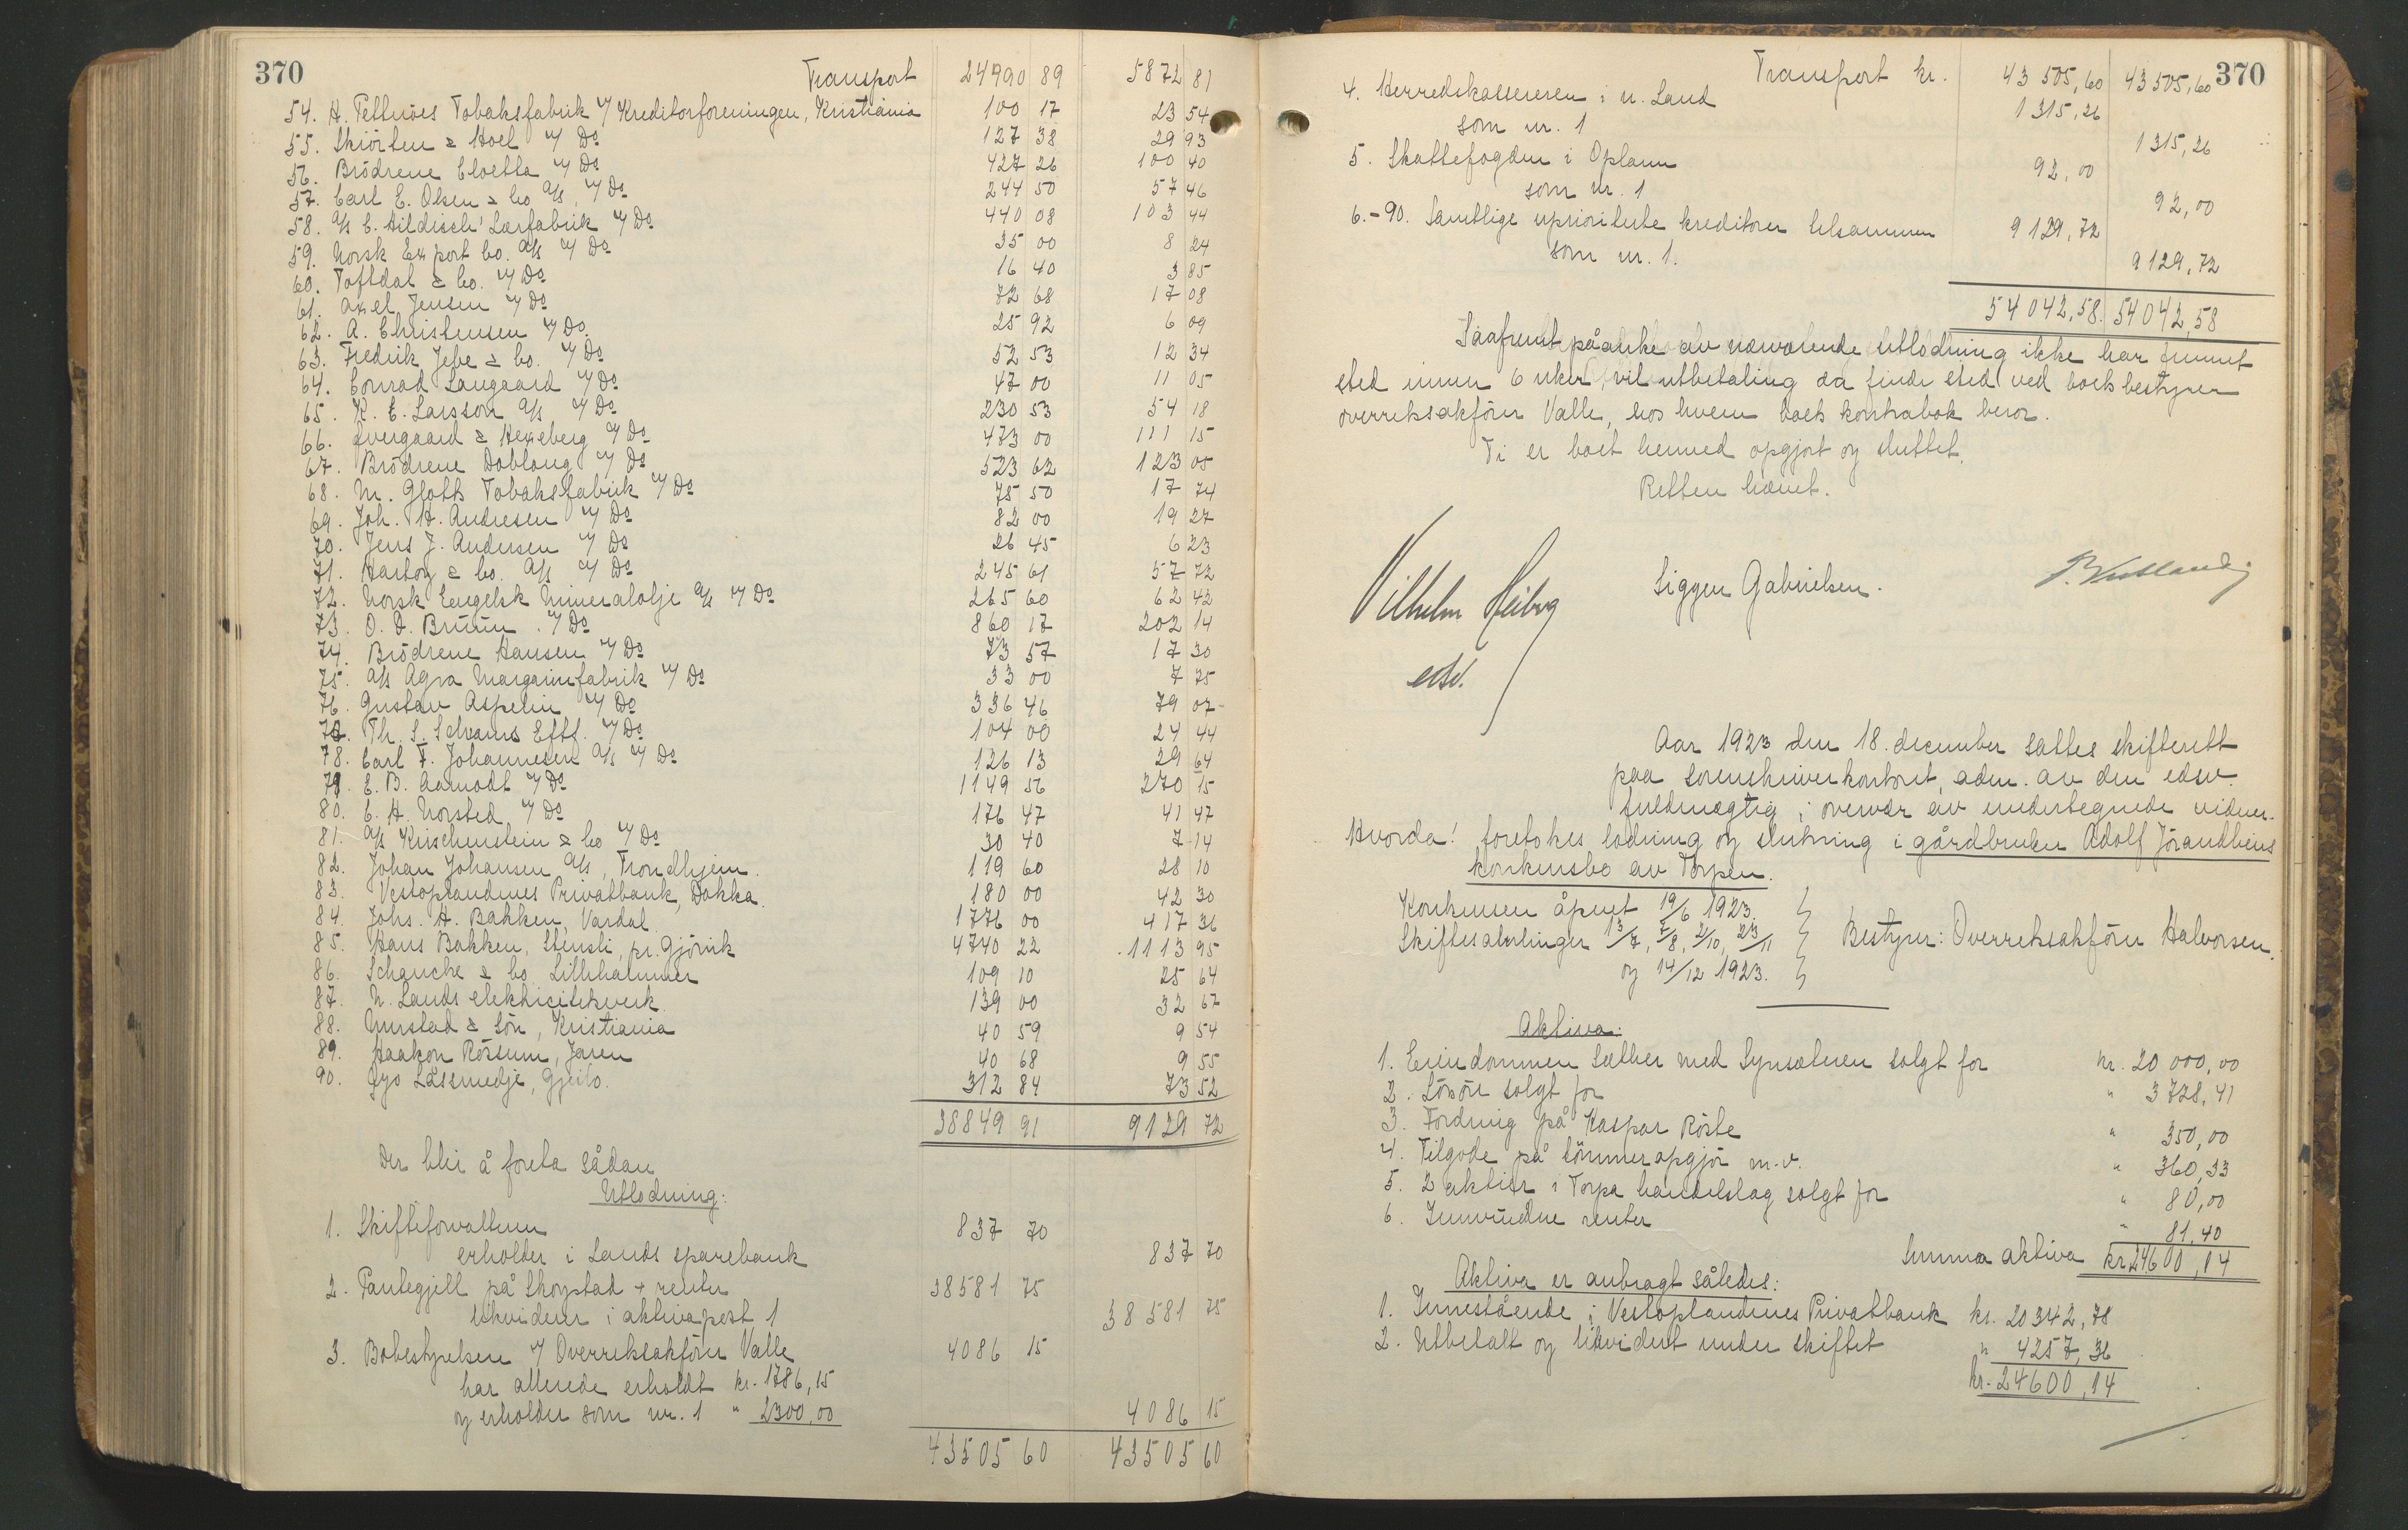 370
Transport 24990 89 5872 81
54. H. Petteröes Tobaksfabrik v/ Kreditorforeningen, Kristiania 100 17 23 54
55. Skiörten & Hoel v/ Do 127 38 29 93
56. Brödrene Cloetta v/ Do 427 26 100 40
57. Carl E. Olsen & Co A/s, v/ Do 244 50 57 46
58. A/s C. Hildisch' Lærfabrik v/ Do 440 08 103 44
59. Norsk Export Co. A/s v/ Do 35 00 8 24
60. Toftdal & Co. v/ Do 16 40 3 85
61. Axel Jensen v/ Do 72 68 17 08
62. A. Christensen v/ Do. 25 92 6 09
63. Fredrik Jebe & Co. v/ Do 52 53 12 34
64. Conrad Langaard v/ Do 47 00 11 05
65. K. E. Larsson A/s v/ Do 230 53 54 18
66. Evergaard & Hexeberg v/ Do 473 00 111 15
67. Brödrene Dobloug v/ Do 523 62 123 05
68. M. Gloths Tobaksfabrik v/ Do 75 50 17 74
69. Joh. H. Andresen v/ Do 82 00 19 27
70. Jens J. Andersen v/ Do 26 45 6 23
71. Hartog & Co. A/s v/ Do 245 61 57 72
72. Norsk Engelsk Mineralolje A/s v/ Do 265 60 62 42
73. O. D. Bruun. v/ Do 860 17 202 14
74. Brödrene Hansen v/ Do 73 57 17 30
75. A/s Agra Margarinfabrik v/ Do 33 00 7 75
76. Gustav Aspelin v/ Do 336 46 79 07
77. Th. S. Eftf. v/ Do 104 00 24 44
78. Carl F. Johannesen A/s v/ Do 126 13 29 64
79. E. B. Aamodt v/ Do 1149 56 270 15
80. C. H. Norsted v/ Do 176 47 41 47
81. A/s Kirschenstein & Co v/ Do 30 40 7 14
82. Johan Johansen A/s, Trondhjem. 119 60 28 10
83. Vestoplandenes Privatbank, Dokka. 180 00 42 30
84. Johs. H. Bakken, Vardal 1776 00 417 36
85. Hans Bakken, Stensli, pr. Gjövik 4740 22 1113 95
86. Schanche & Co, Lillehammer 109 10 25 64
87. N. Lands elektricitetsverk. 139 00 32 67
88. Unnstad & Sön, Kristiania 40 59 9 54
89. Haakon Rössum, Jaren 40 68 9 55
90. Låssmedje, 312 84 73 52
38849 91 9129 72
Der blir å foreta sådan
Utlodning:
1. Skifteforvalteren 837 70
erholder i Lands sparebank 837 70
2. Pantegjell på Skogstad + renter 38581 75
likviderer i aktivapost 1 38581 75
3. Bobestyrelsen v/ Overretssakförer Valle 4086 15
har allerede erholdt kr. 1786,15
og erholder som nr. 1 " 2300,00 4086 15
43505 60 43505 60
370
Transport kr. 43505,60 43505,60
4. Herredskassereren i n. Land 1315,26
som nr. 1 1315,26
5. Skattefogden i Opland 92,00
som nr. 1 92,00
6.-90. Samtlige uprioriterte kreditorer tilsammen 9129,72
som nr. 1. 9129,72
54042,58. 54042,58
Såfremt påanke av nærværende utlodning ikke har funnet
sted innen 6 uker, vil utbetaling da finde sted ved boets bestyrer
overretssakförer Valle, hos hvem boets kontrabok beror.
Ti er boet hermed opgjort og sluttet.
Retten hævet.
Vilhelm Heiberg
edsv.
Siggen Gabrielsen.
Aar 1923 den 18. december sattes skifterett
paa sorenskriverkontoret, adm. av den edsv.
fuldmægtig, i overvær av undertegnede vidner.
Hvorda! foretokes lodning og slutning i gårdbruker Adolf Jörandliens
konkursbo av Torpen.
Konkursen åpnet 19/6 1923.
Skiftesamlinger 13/7, 7/8, 2/10, 23/11
og 14/12 1923.
Bestyrer: Overretssakförer Halvorsen.
Aktiva:
1. Eiendommen Sæther med Synsæteren solgt for kr. 20 000,00
2. Lösöre solgt for " 3728,41
3. Fordring på Kaspar Röste " 350,00
4. Tilgode på tömmeropgjör m.v. " 360,33
5. 2 aktier i Torpa handelslag solgt for " 80,00
6. Innvundne renter " 81,40
Summa aktiva kr. 24600,14
Aktiva er anbragt således:
1. Innestående i Vestoplandenes Privatbank kr. 20342,78
2. Utbetalt og likvidert under skiftet " 4257,36
kr. 24600,14